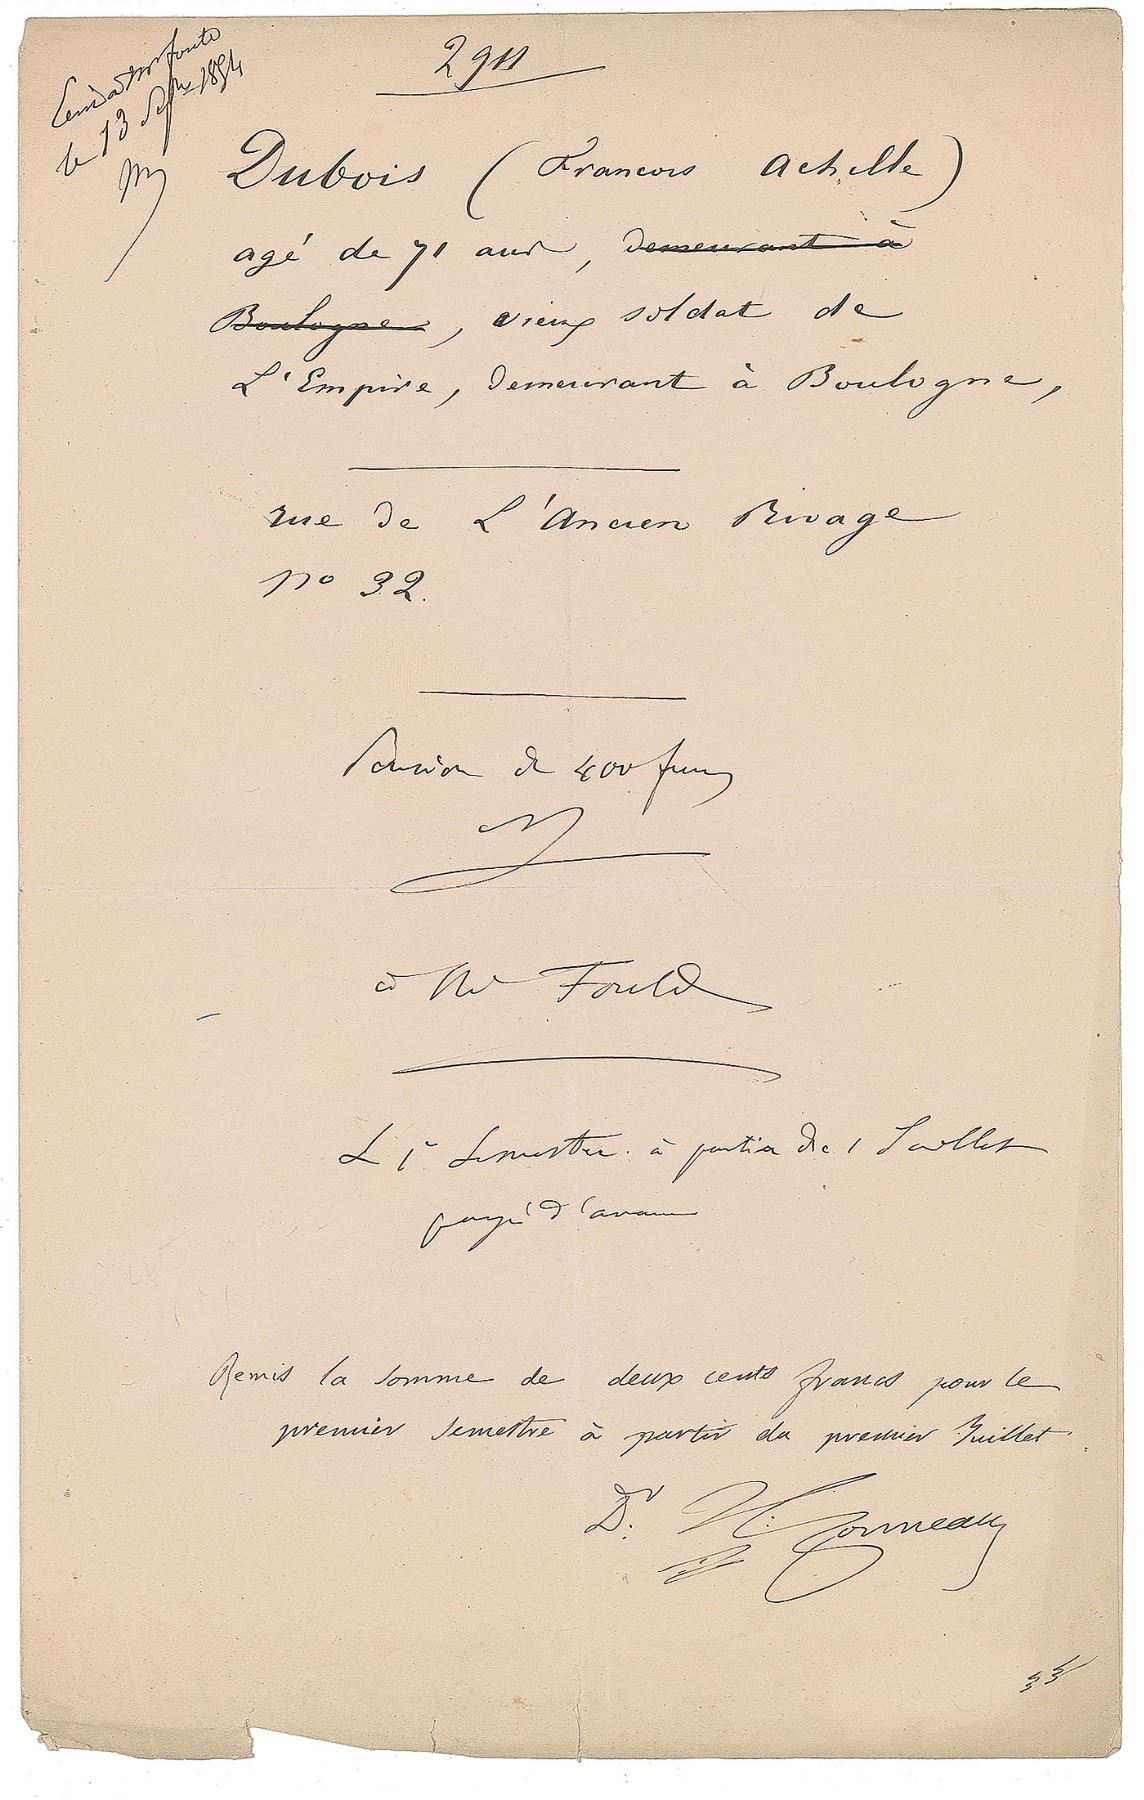 le 13 1854
2911
Dubois (Francois achille)
agé de 71 ans, demeurant à
Boulogne, vieux soldat de
L'Empire, demeurant à Boulogne,
rue de L'Ancien Rivage
no 32.
Pension de 400 francs
N
à Mr Fould
Le 1er Semestre à partir du 1 Juillet
payé d'avance
Remis la somme de deux cents francs pour le
premier semestre à partir du premier Juillet
Dr. H. Conneau